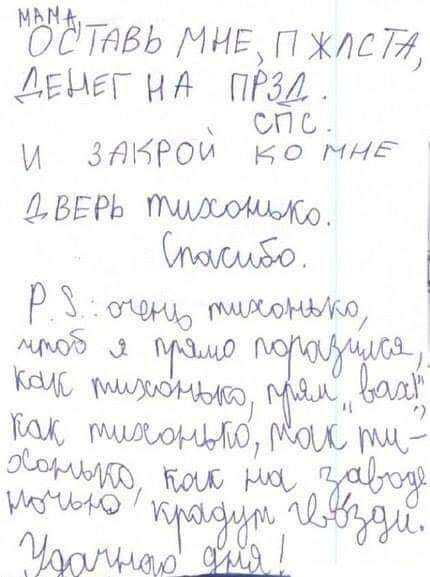 МАМА,
ОСТАВЬ МНЕ, ПЖЛСТА,
ДЕНЕГ НА ПРЗД.
СПС.
И ЗАКРОЙ КО МНЕ
ДВЕРЬ тихонько.
Спасибо.
P.S.: очень тихонько,
чтоб я прямо поразился,
как тихонько, прям „вах!",
как тихонько, так ти-
хонько, как на заводе
ночью крадут гвозди.
Удачного дня!